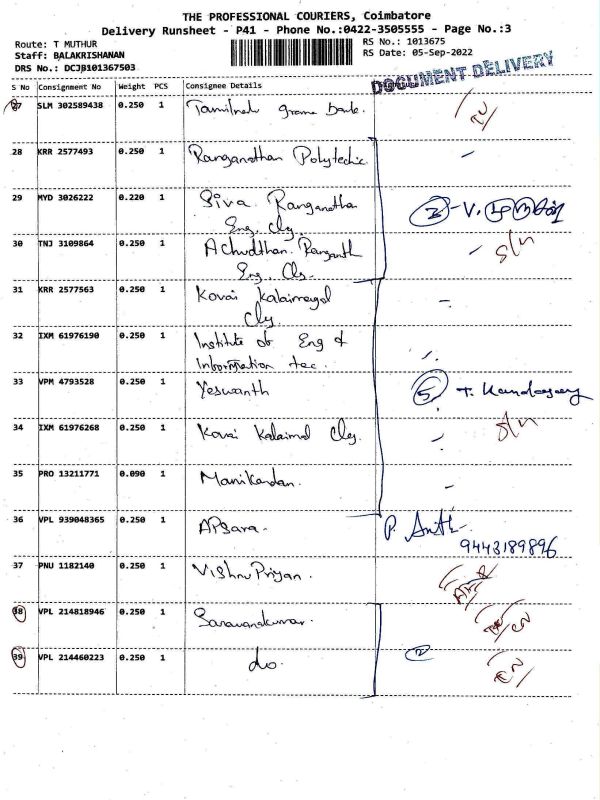 THE PROFESSIONAL COURIERS, Coimbatore
Delivery Runsheet - P41 - Phone No.:0422-3505555 - Page No.:3
Route: T MUTHUR
Staff: BALAKRISHANAN
DRS No.: DCJB101367503
RS No.: 1013675
RS Date: 05-Sep-2022
DOCUMENT DELIVERY
S No Consignment No Weight PCS Consignee Details
27 SLM 302589438 0.250 1 Tamilnadu grama bank.
28 KRR 2577493 0.250 1 Ranganathan Polytechic
29 MYD 3026222 0.220 1 Siva Ranganatha
Eng. Clg.
30 TNJ 3109864 0.250 1 Achudthan. Ranganth
Eng. Clg.
S/n
31 KRR 2577563 0.250 1 Kovai Kalaimagal
Clg.
32 IXM 61976190 0.250 1 Institute of Eng &
Information tec.
33 VPM 4793528 0.250 1 Yeswanth 5
34 IXM 61976268 0.250 1 Kovai Kalaimal Clg.
S/n
35 PRO 13211771 0.090 1 Manikandan.
36 VPL 939048365 0.250 1 APsara.
9443189896
37 PNU 1182140 0.250 1 VishnuPriyan.
38 VPL 214818946 0.250 1 Saravanakumar.
39 VPL 214460223 0.250 1 do. 2